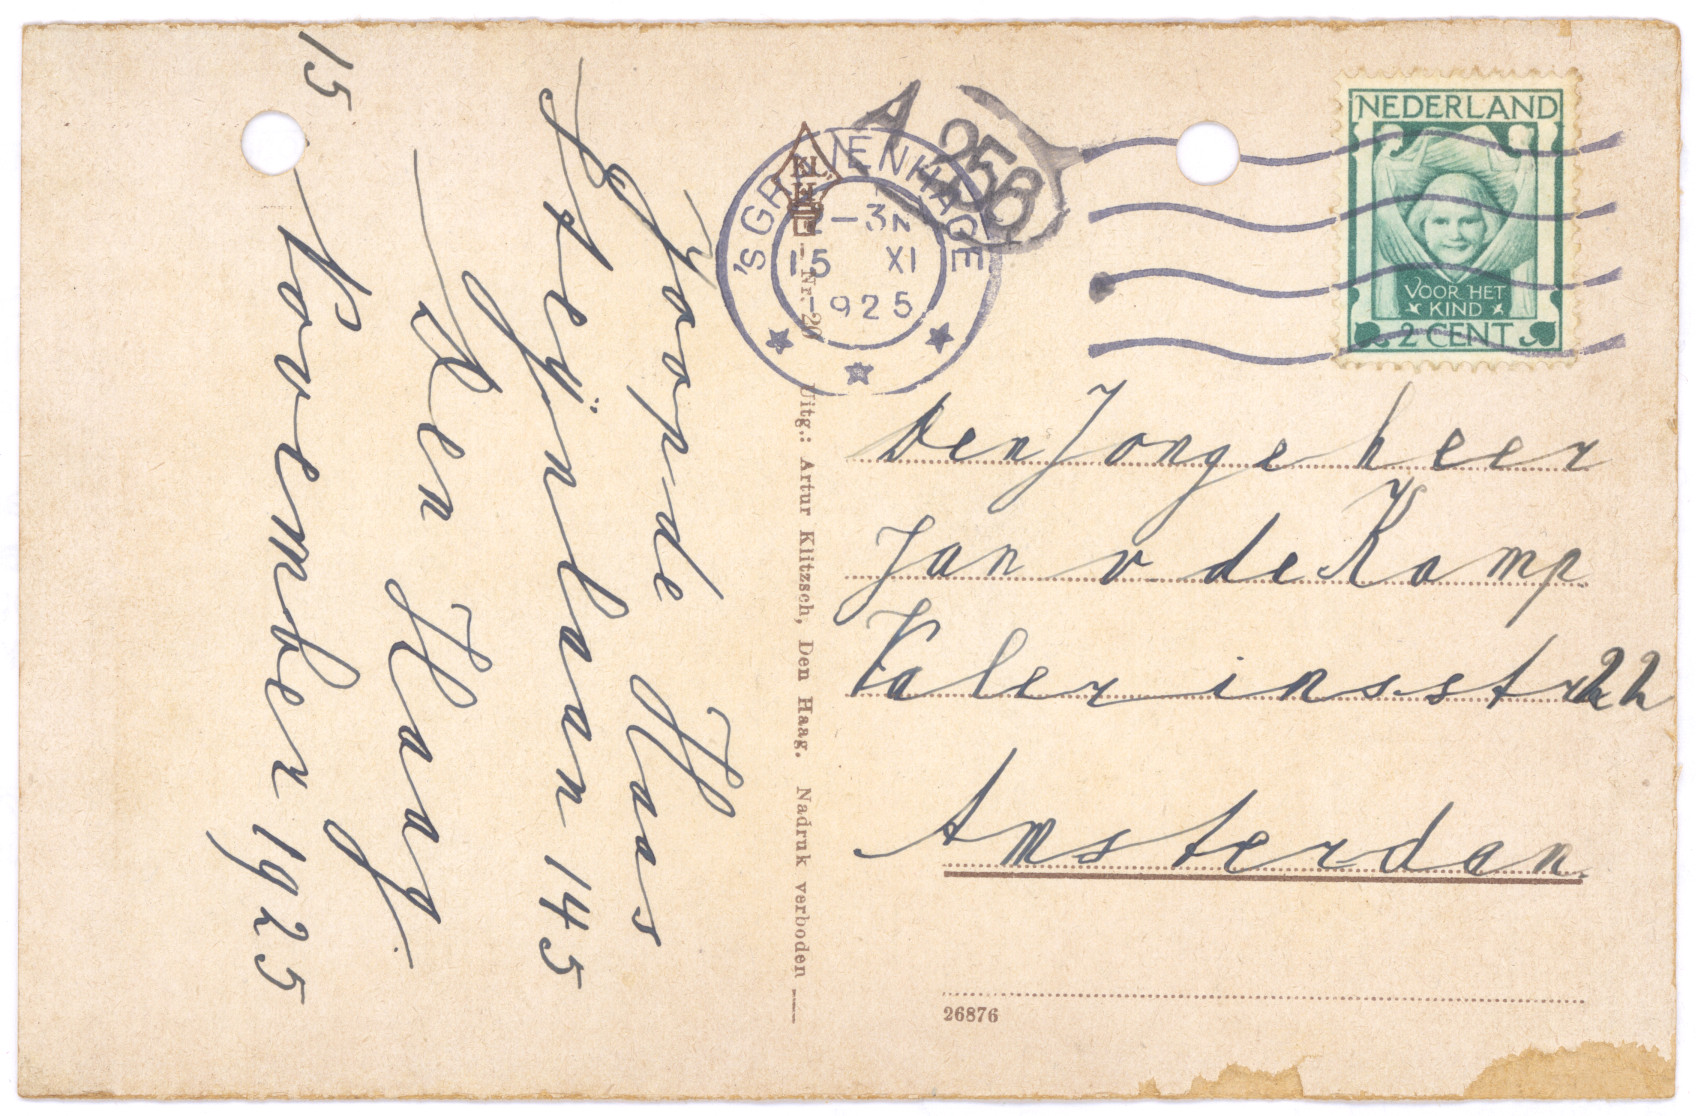 Joop de Haas
Steijnlaan 145
Den Haag.
15 November 1925
Nr. 20
Uitg.: Artur Klitzsch, Den Haag. Nadruk verboden
'S GRAVENHAGE
-3N
15 XI
1925
A 256
NEDERLAND
VOOR HET
KIND
2 CENT
Den Jonge heer
Jan v de Kamp
Valeriusstr 22
Amsterdam
26876